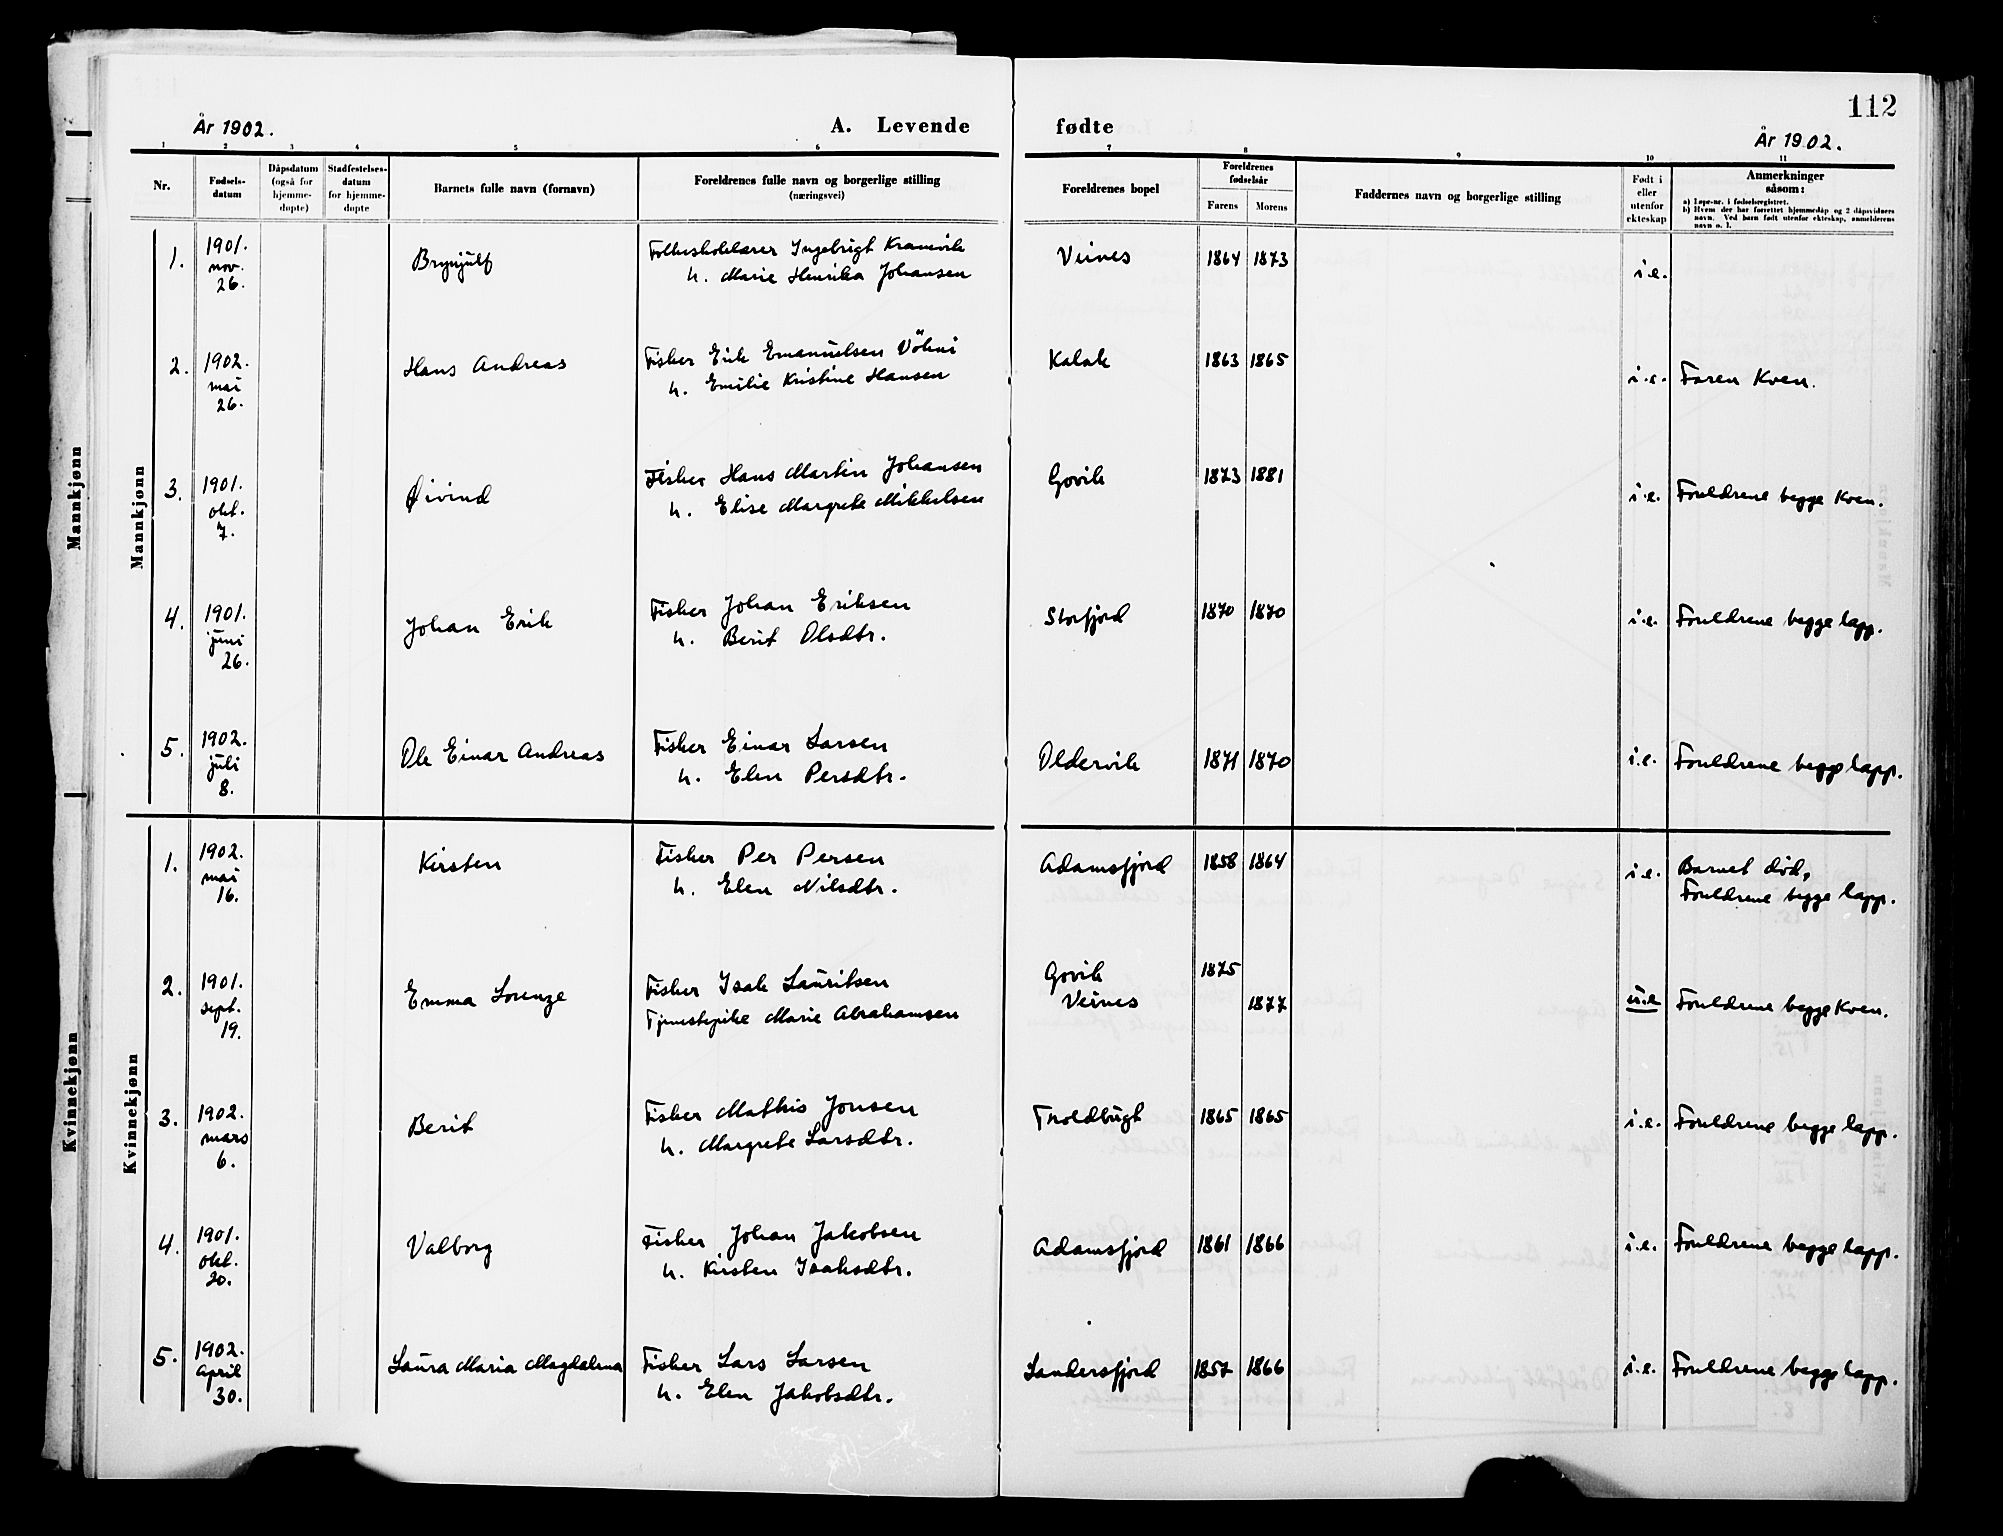 112
År 1902.
A. Levende fødte
År 1902.
1 2 3 4 5 6 7 8 9 10 11
Nr.
Fødsels-
datum
Dåpsdatum
(også for
hjemme-
døpte)
Stadfestelses-
datum
for hjemme-
døpte
Barnets fulle navn (fornavn)
Foreldrenes fulle navn og borgerlige stilling
(næringsvei)
Foreldrenes bopel
Foreldrenes
fødselsår
Farens Morens
Faddernes navn og borgerlige stilling
Født i
eller
utenfor
ekteskap
Anmerkninger
såsom:
a) Løpe-nr. i fødselsregistret.
b) Hvem der har forrettet hjemmedåp og 2 dåpsvidners
navn. Ved barn født utenfor ekteskap, anmelderens
navn o. l.
Mannkjønn
Mannkjønn
1. 1901. nov. 26. Brynjulf
Folkeskolelærer Ingebrigt Kramvik
h. Marie Henrika Johansen
Veines 1864 1873 i.e.
2. 1902. mai 26. Hans Andreas
Fisker Erik Emanuelsen
h. Emilie Kristine Hansen
Kalak 1863 1865 i.e. Faren Kven.
3. 1901. okt. 7. Øivind
Fisker Hans Martin Johansen
h. Elise Margrete Mikkelsen
Govik 1873 1881 i.e. Foreldrene begge Kven.
4. 1901. juni 26. Johan Erik
Fisker Johan Eriksen
h. Berit Olsdtr.
Storfjord 1870 1870 i.e. Foreldrene begge lapp.
5. 1902. juli 8. Ole Einar Andreas
Fisker Einar Larsen
h. Elen Persdtr.
Oldervik 1871 1870 i.e. Foreldrene begge lapp.
Kvinnekjønn
Kvinnekjønn
1. 1902. mai 16. Kirsten
Fisker Per Persen
h. Elen Nilsdtr.
Adamsfjord 1858 1864 i.e. Barnet død,
Foreldrene begge lapp.
2. 1901. sept. 19. Emma Lorenze
Fisker Isak Lauritsen
Tjenestepike Marie Abrahamsen
Govik 1875
Veines 1877 u.e Foreldrene begge Kven.
3. 1902. mars 6. Berit
Fisker Mathis Jonsen
h. Margrete Larsdtr.
Troldbugt 1865 1865 i.e. Foreldrene begge lapp.
4. 1901. okt. 20. Valborg
Fisker Johan Jakobsen
h. Kirsten Isaksdtr.
Adamsfjord 1861 1866 i.e. Foreldrene begge lapp.
5. 1902. April 30. Laura Maria Magdalena
Fisker Lars Larsen
h. Elen Jakobsdtr.
Landersfjord 1857 1866 i.e. Foreldrene begge lapp.